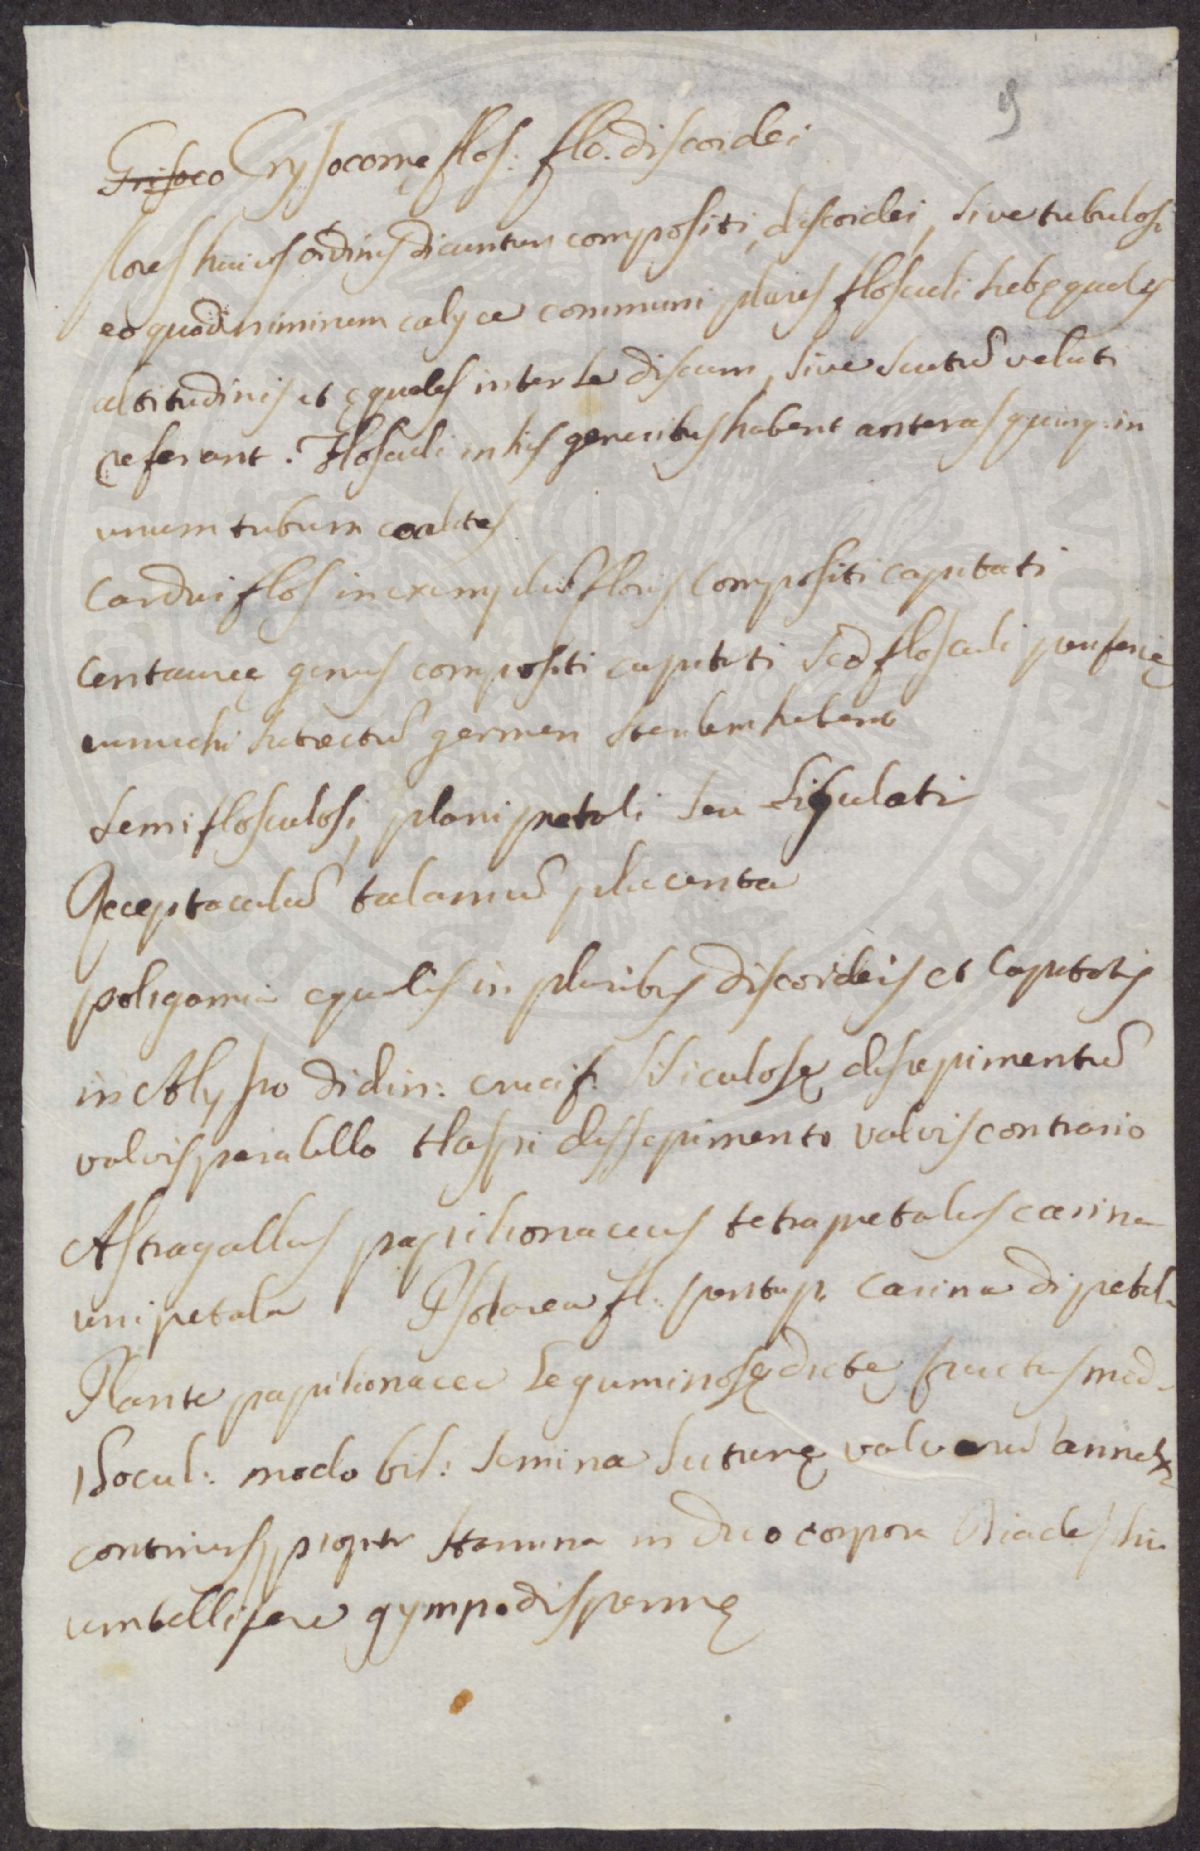 9
Grisoco Crysocomę flos: flo. discoidei
flores huius ordinis dicuntur compositi, discoidei, sive tubulosi
eo quod nimirum calyce communi plures flosculi
altitudinis et ęquales inter se discum, sive scutũ veluti
referant. Flosculi in his generibus habent anteras quinq: in
unum tubum coalitas
Cardui flos in exemplũ floris compositi capitati
Centaureę genus compositi capitati sed flosculi
germen sterilem habent
Semiflosculosi, planipetali seu Ligulati
Receptaculũ talamũ placenta
poligamia equalis in pluribus discoideis et Capitatis
in Alysso didin: crucif: siliculosę disepimentũ
valvis paralello tlaspi dissepimento valvis contrario
Astragallus papilionaceus tetrapetalus carina
unipetala Psolarea fl: pentap. carina dipetala
Plante papilionacee Leguminosę dictę fructus mod.
1 Locul: modo bil: semina suturę valvarũ annexa
continens propter stamina in duo corpora Diadelphia
umbellifere gymnodispermę